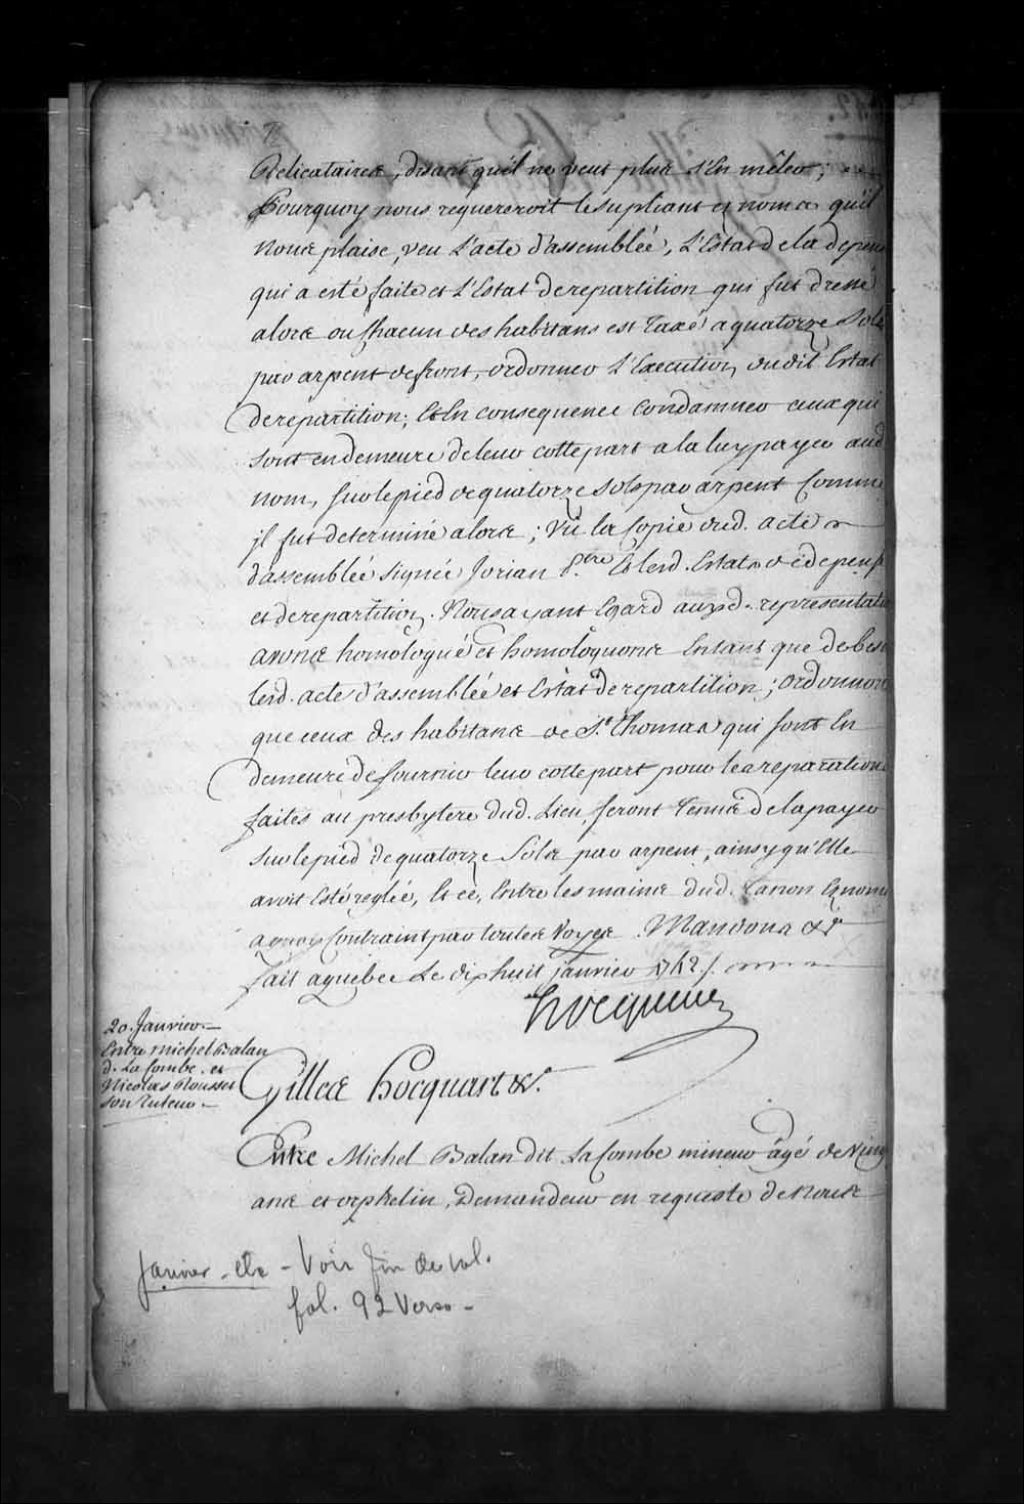 Delicataires, disant qu'il ne veut plus s'En mêler;
Pourquoy nous requereroit le supliant es noms qu'il
Nous plaise, veu L'acte d'assemblée, L'Estat de la depens
qui a esté faite et L'Estat de repartition qui fut dressé
alors ou Chacun des habitans est Taxé a quatorze Sols
par arpent de front, ordonner L'Execution dudit Estat
de repartition; Et En consequence Condamner ceux qui
sont en demeure de leur cotte part a la luy payer aud
nom, sur le pied de quatorze sols par arpent Comme
jl fut determiné alors; Vû la Copie dud. acte
d'assemblée signée Jorian Ptre Et lesd. Estats de depens
et de repartition. Nous ayant Egard auxd. representatio
avons homologué et homologuons Entant que de besoi
led. acte d'assemblée et Estat de repartition; ordonnons
que ceux des habitans de St. Thomas qui sont En
demeure de fournir leur cotte part pour les reparations
faites au presbytere dud. Lieu, seront Tenus de la payer
sur le pied de quatorze Sols par arpent, ainsy qu'Elle
avoit Esté reglée, Et ce, Entre les mains dud. Es noms
a quoy Contraint par toutes Voyes. Mandons &c
Fait a quebec Le dix huit janvier 1742 /.
Hocquart
20. Janvier.—
Entre Michel Balan
d. La Combe. et
Nicolas Rousset
son Tuteur—
Gilles Hocquart &c.
Entre Michel Balan dit La Combe mineur âgé de Ving
ans et orphelin, Demandeur en requeste de Nous
Janvier - - Voir fin de vol.
fol. 92 Verso -